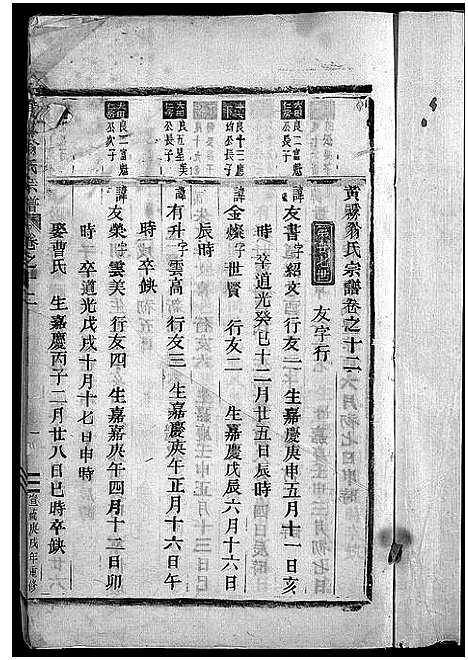 黃縣翁氏宗譜卷之十二
友字行
大田 仁房 良二富魁公長子
諱友書字紹文 行友二十 生嘉慶庚申五月十一日亥
時 卒道光癸巳十二月廿五日辰時
良十三 公長子
諱金燦字世賢 行友二 生嘉慶戊辰六月十六日
辰時
大田 仁房 良五星美公長子
諱有升字雲高 行友三 生嘉慶庚午正月十六日午
時 卒缺
大田 仁房 良二富魁公次子
諱友榮字雲美 行友四 生嘉慶庚午四月十二日卯
時 卒道光戊戌十月十七日申時
娶曹氏 生嘉慶丙子二月廿八日巳時卒缺
翁氏宗譜 卷之十二
宣統庚戌年重修